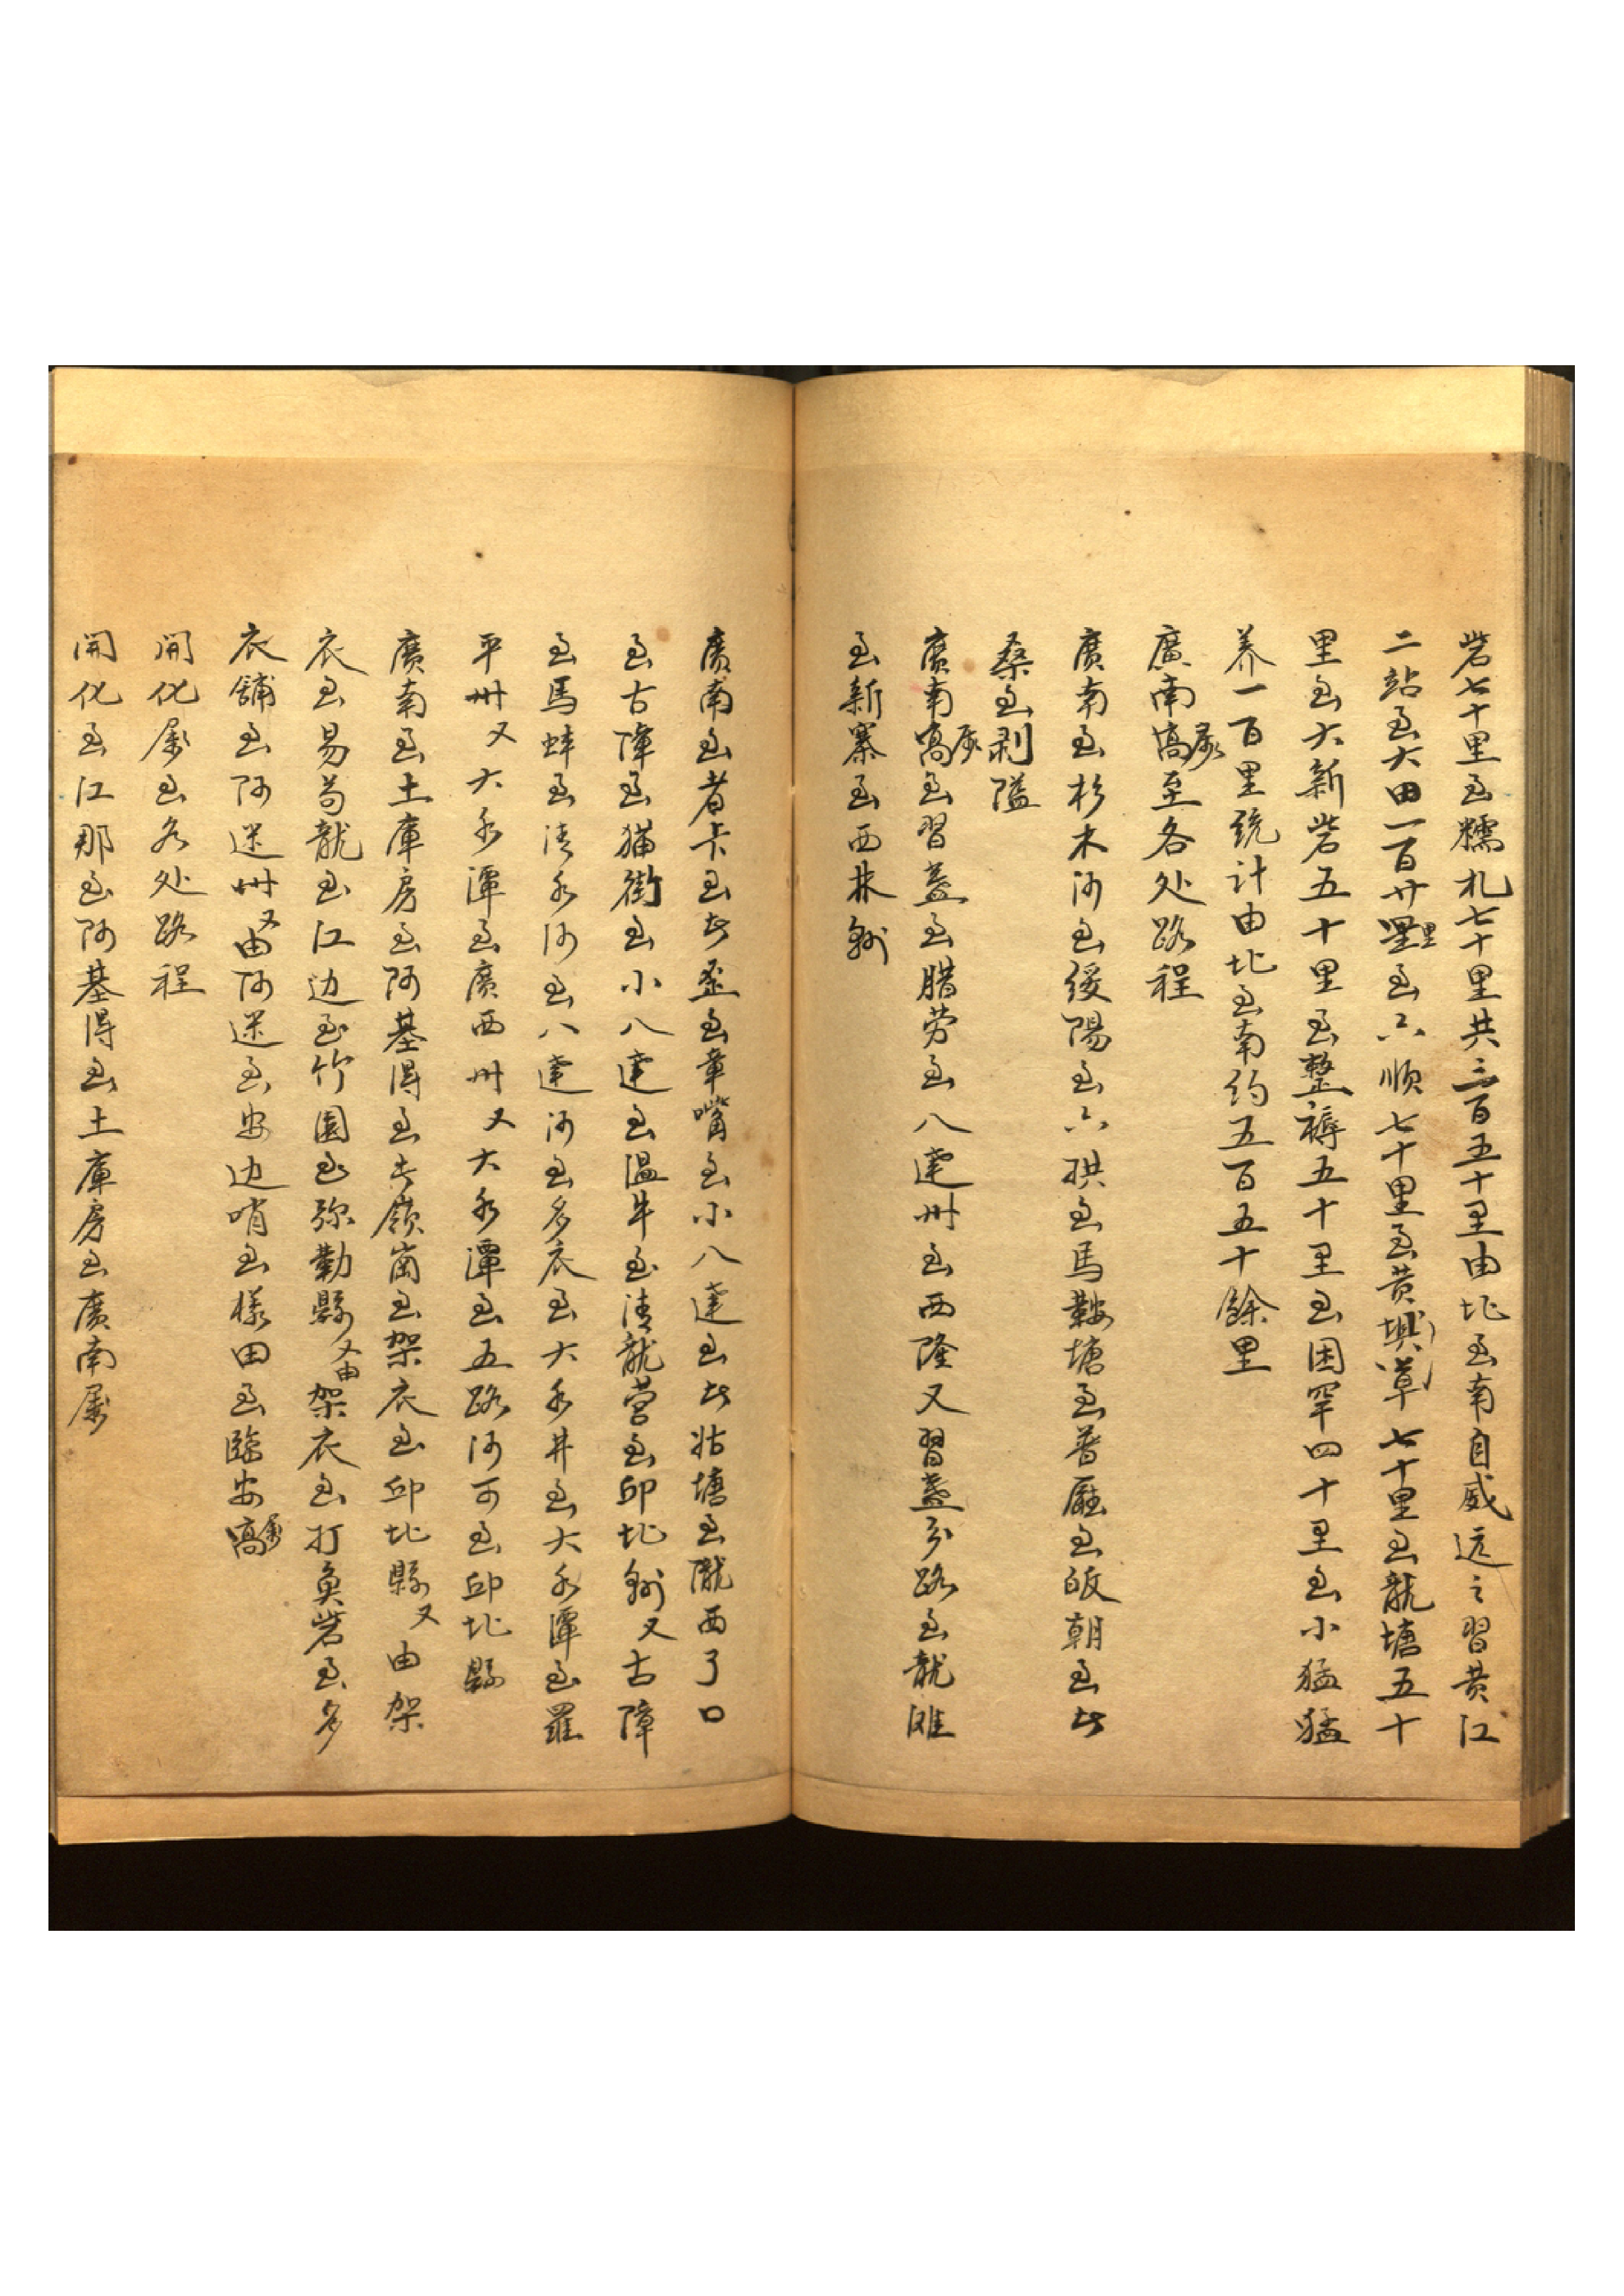 砦七十里至糯扎七十里共三百五十里由北至南自威遠之習黄江
二站至大田一百廿里至六順七十里至黄埧草七十里至龍塘五十
里至大新砦五十里至整褥五十里至困罕四十里至小猛猛
养一百里統計由北至南约五百五十餘里
廣南属至各处路程
廣南至杉木河至緩陽至六拱至馬鞍塘至普廳至皈朝至
桑至剥隘
廣南属至習盖至腊劳至八達州至西隆又習盖分路至龍滩
至新寨至西林
廣南至者卡至歪至章嘴至小八達至塘至隴西了口
至古障至猫街至小八達至温牛至清龍营至邱北又古障
至馬蚌至清水河至八達河至多衣至大水井至大水潭至羅
平州又大水潭至廣西州又大水潭至五路河可至邱北縣
廣南至土庫房至阿基得至嶺崗至架衣至邱北縣又由架
衣至易苟龍至江边至竹園至弥勒縣又由架衣至打奐砦至多
衣舖至阿迷州又由阿迷至安边哨至樣田至臨安属
開化属至各处路程
開化至江那至阿基得至土庫房至廣南属